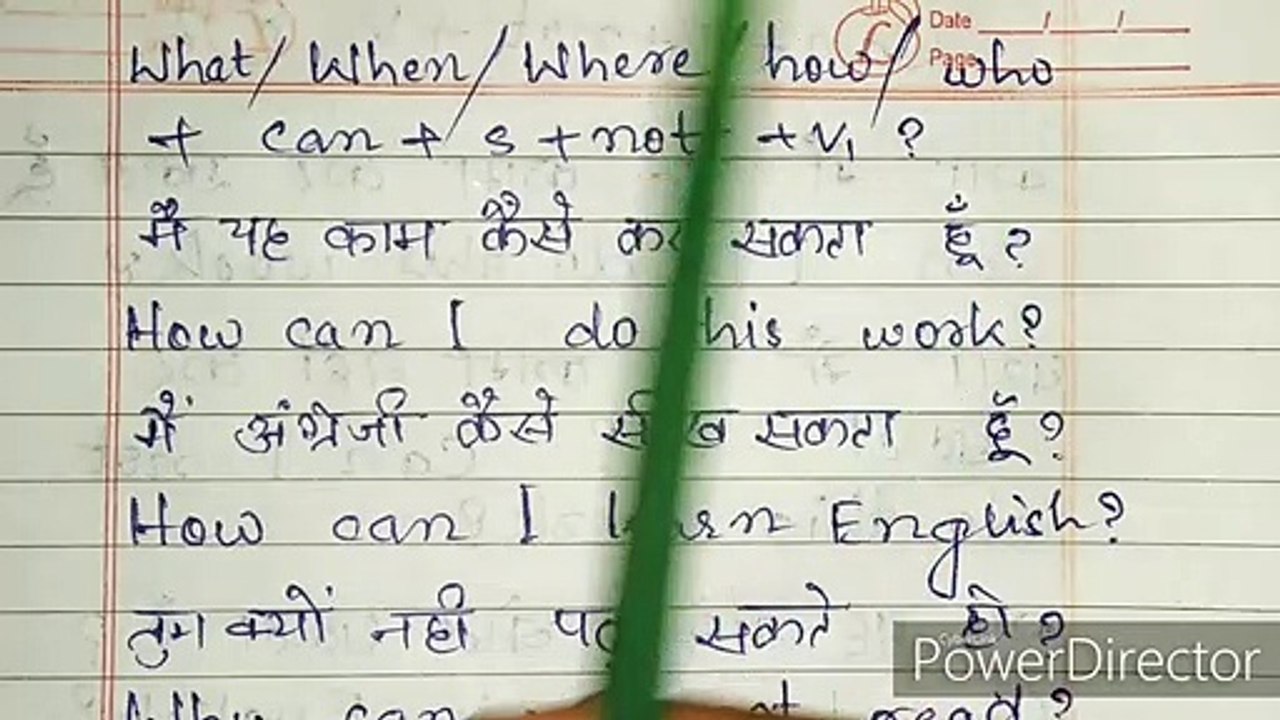 Date / /
Page
What/ When/ Where how/ who
+ can + s + not +V1 ?
मै यह काम कैसे कर सकता हूँ ?
How can I do this work?
मैं अंग्रेजी कैसे सीख सकता हूँ ?
How can I learn English?
तुम क्यों नही पढ़ सकते हो ?
Why can read?
PowerDirector